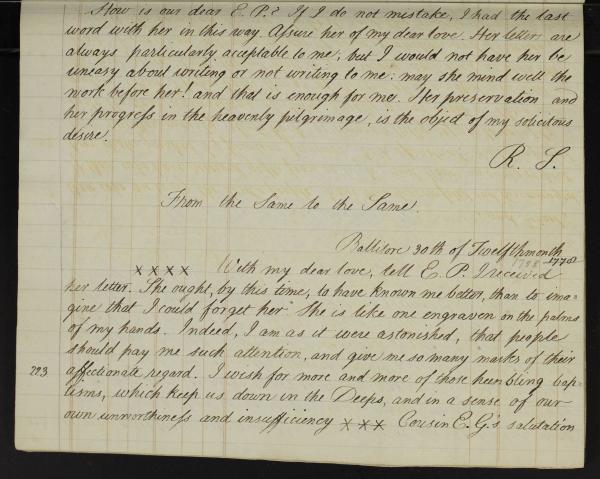 How is our dear E. P.? If I do not mistake, I had the last
word with her in this way. Assure her of my dear love. Her letters are
always particularly acceptable to me; but I would not have her be
uneasy about writing or not writing to me: may she mind well the
work before her! and that is enough for me. Her preservation and
her progress in the heavenly pilgrimage, is the object of my solicitous
desire.
R. S.
From the Same to the Same.
Ballitore 30th of Twelfthmonth
1778
x x x x With my dear love, tell E. P. I received
her letter. She ought, by this time, to have known me better, than to ima=
gine that I could forget her. She is like one engraven on the palms
of my hands. Indeed, I am as it were astonished, that people
should pay me such attention, and give me so many marks of their
293 affectionate regard. I wish for more and more of those humbling bap=
tisms, which keep us down in the Deeps, and in a sense of our
own unworthiness and insufficiency x x x Cousin E. G's salutation